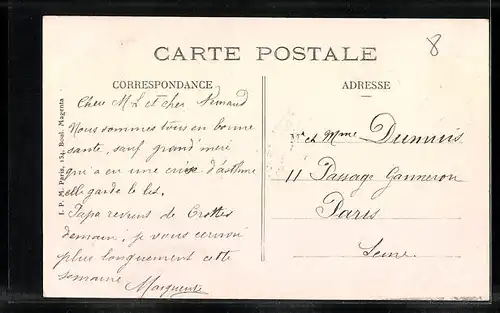 CARTE POSTALE
8
CORRESPONDANCE
ADRESSE
I. P. M. Paris, 154, Boul. Magenta
Chers M L et cher
Nous sommes tous en bonne
sante, sauf grand' mere
qui a en une crise d'asthme
elle garde le lit.
Papa revient de Crottes
demain; je vous
plus longuement cette
semaine Marguerite
Mr et Mme Dumuis
11 Passage Ganneron
Paris
Seine.